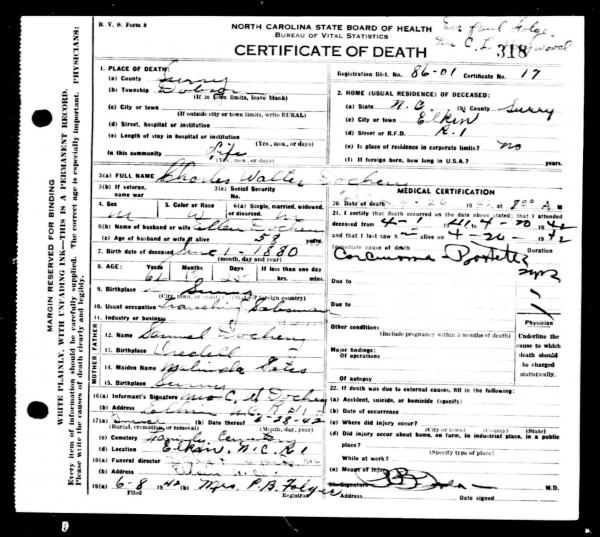 B. V. S. Form 8
NORTH CAROLINA STATE BOARD OF HEALTH
BUREAU OF VITAL STATISTICS
CERTIFICATE OF DEATH 318
Registration Dist. No. 86-01 Certificate No. 17
MARGIN RESERVED FOR BINDING
WRITE PLAINLY, WITH UNFADING INK—THIS IS A PERMANENT RECORD.
Every item of information should be carefully supplied. The correct age is especially important. PHYSICIANS:
Please write the causes of death clearly and legibly.
1. PLACE OF DEATH:
(a) County Surry
(b) Township Dobson
(If in town limits, leave blank)
(c) City or town
(If outside city or town limits, write RURAL)
(d) Street, hospital or institution
(e) Length of stay in hospital or institution
(Yrs., mos., or days)
In this community Life
(Yrs., mos., or days)
2. HOME (USUAL RESIDENCE) OF DECEASED:
(a) State N.C. (b) County Surry
(c) City or town Elkin
(d) Street or R.F.D. R.1
(e) Is place of residence in corporate limits? no
(f) If foreign born, how long in U.S.A.? years.
3(a) FULL NAME Charles Walter Dockery
3(b) If veteran, war
3(c) Social Security No.
4. Sex M
5. Color or Race W
6(a) Single, married, widowed, or divorced. M
6(b) Name of husband or wife Ellen Dockery
6(c) Age of husband or wife if alive
7. Birth date of deceased June 1 - 1880
(month, day and year)
8. AGE: 61
If less than one day
hrs. min.
9. Birthplace Surry
(City, town, or county) (State or foreign country)
10. Usual occupation Traveling Salesman
11. Industry or business
FATHER
12. Name Samuel Dockery
13. Birthplace Iredell
MOTHER
14. Maiden Name Malinda Gates
15. Birthplace Surry
16(a) Informant's Signature Mrs C. W Dockery
(b) Address
17(a) Burial (b) Date thereof 4-28-42
(Burial, cremation, or removal) (Month, day, year)
(c) Cemetery Family Cemetery
(d) Location Elkin, N.C. R1
18(a) Funeral director
(b) Address Elkin N.C.
19(a) 6-8 1942 (b) Mrs. P.B. Folger
Filed Registrar
MEDICAL CERTIFICATION
20. Date of death 4-26 1942, at 8:00 A M
21. I certify that death occurred on the date above stated; that I attended
deceased from 4-1
and that I last saw h alive on 4-20-1942
Immediate cause of death Duration
Carcinoma
Due to
Due to
Other conditions
(Include pregnancy within 3 months of death)
Major findings:
Of operations
Of autopsy
Physician
Underline
the cause
to which
death
should be
charged
statistically.
22. If death was due to external causes, fill in the following:
(a) Accident, suicide, or homicide (specify)
(b) Date of occurrence
(c) Where did injury occur?
(d) Did injury occur about home, on farm, in industrial place, in a public
place?
While at work?
(e) Means of injury
23. Signature M.D.
Address Date signed